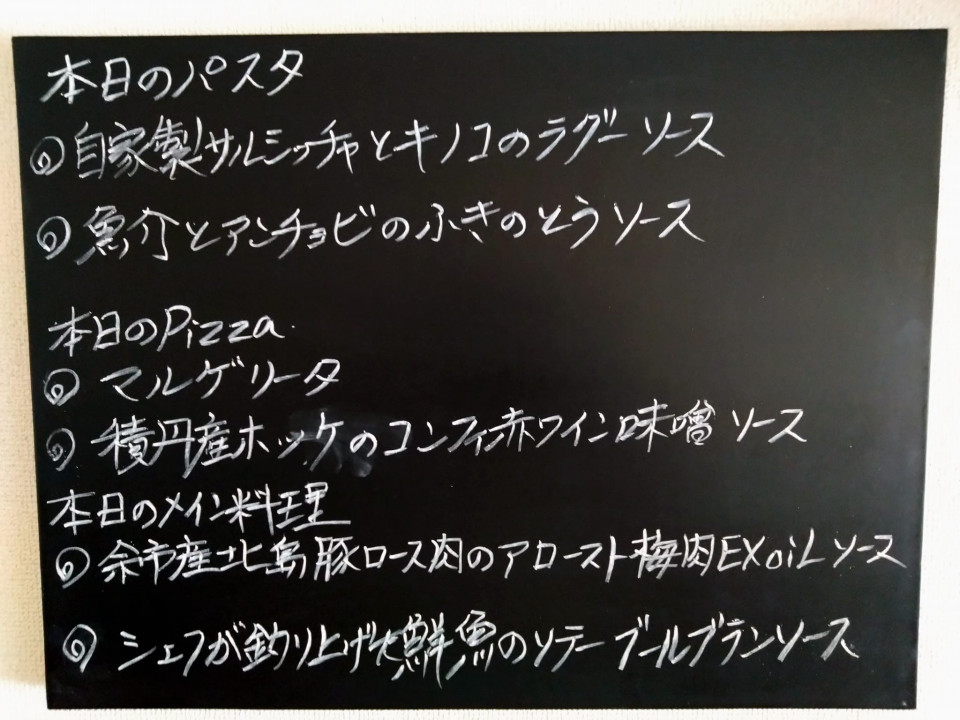 本日のパスタ
◎自家製サルシッチャとキノコのラグーソース
◎魚介とアンチョビのふきのとうソース
本日のPizza
◎マルゲリータ
◎積丹産ホッケのコンフィ赤ワイン味噌ソース
本日のメイン料理
◎余市産北島豚ロース肉のアロースト梅肉EXoiLソース
◎シェフが釣り上げた鮮魚のソテーブールブランソース